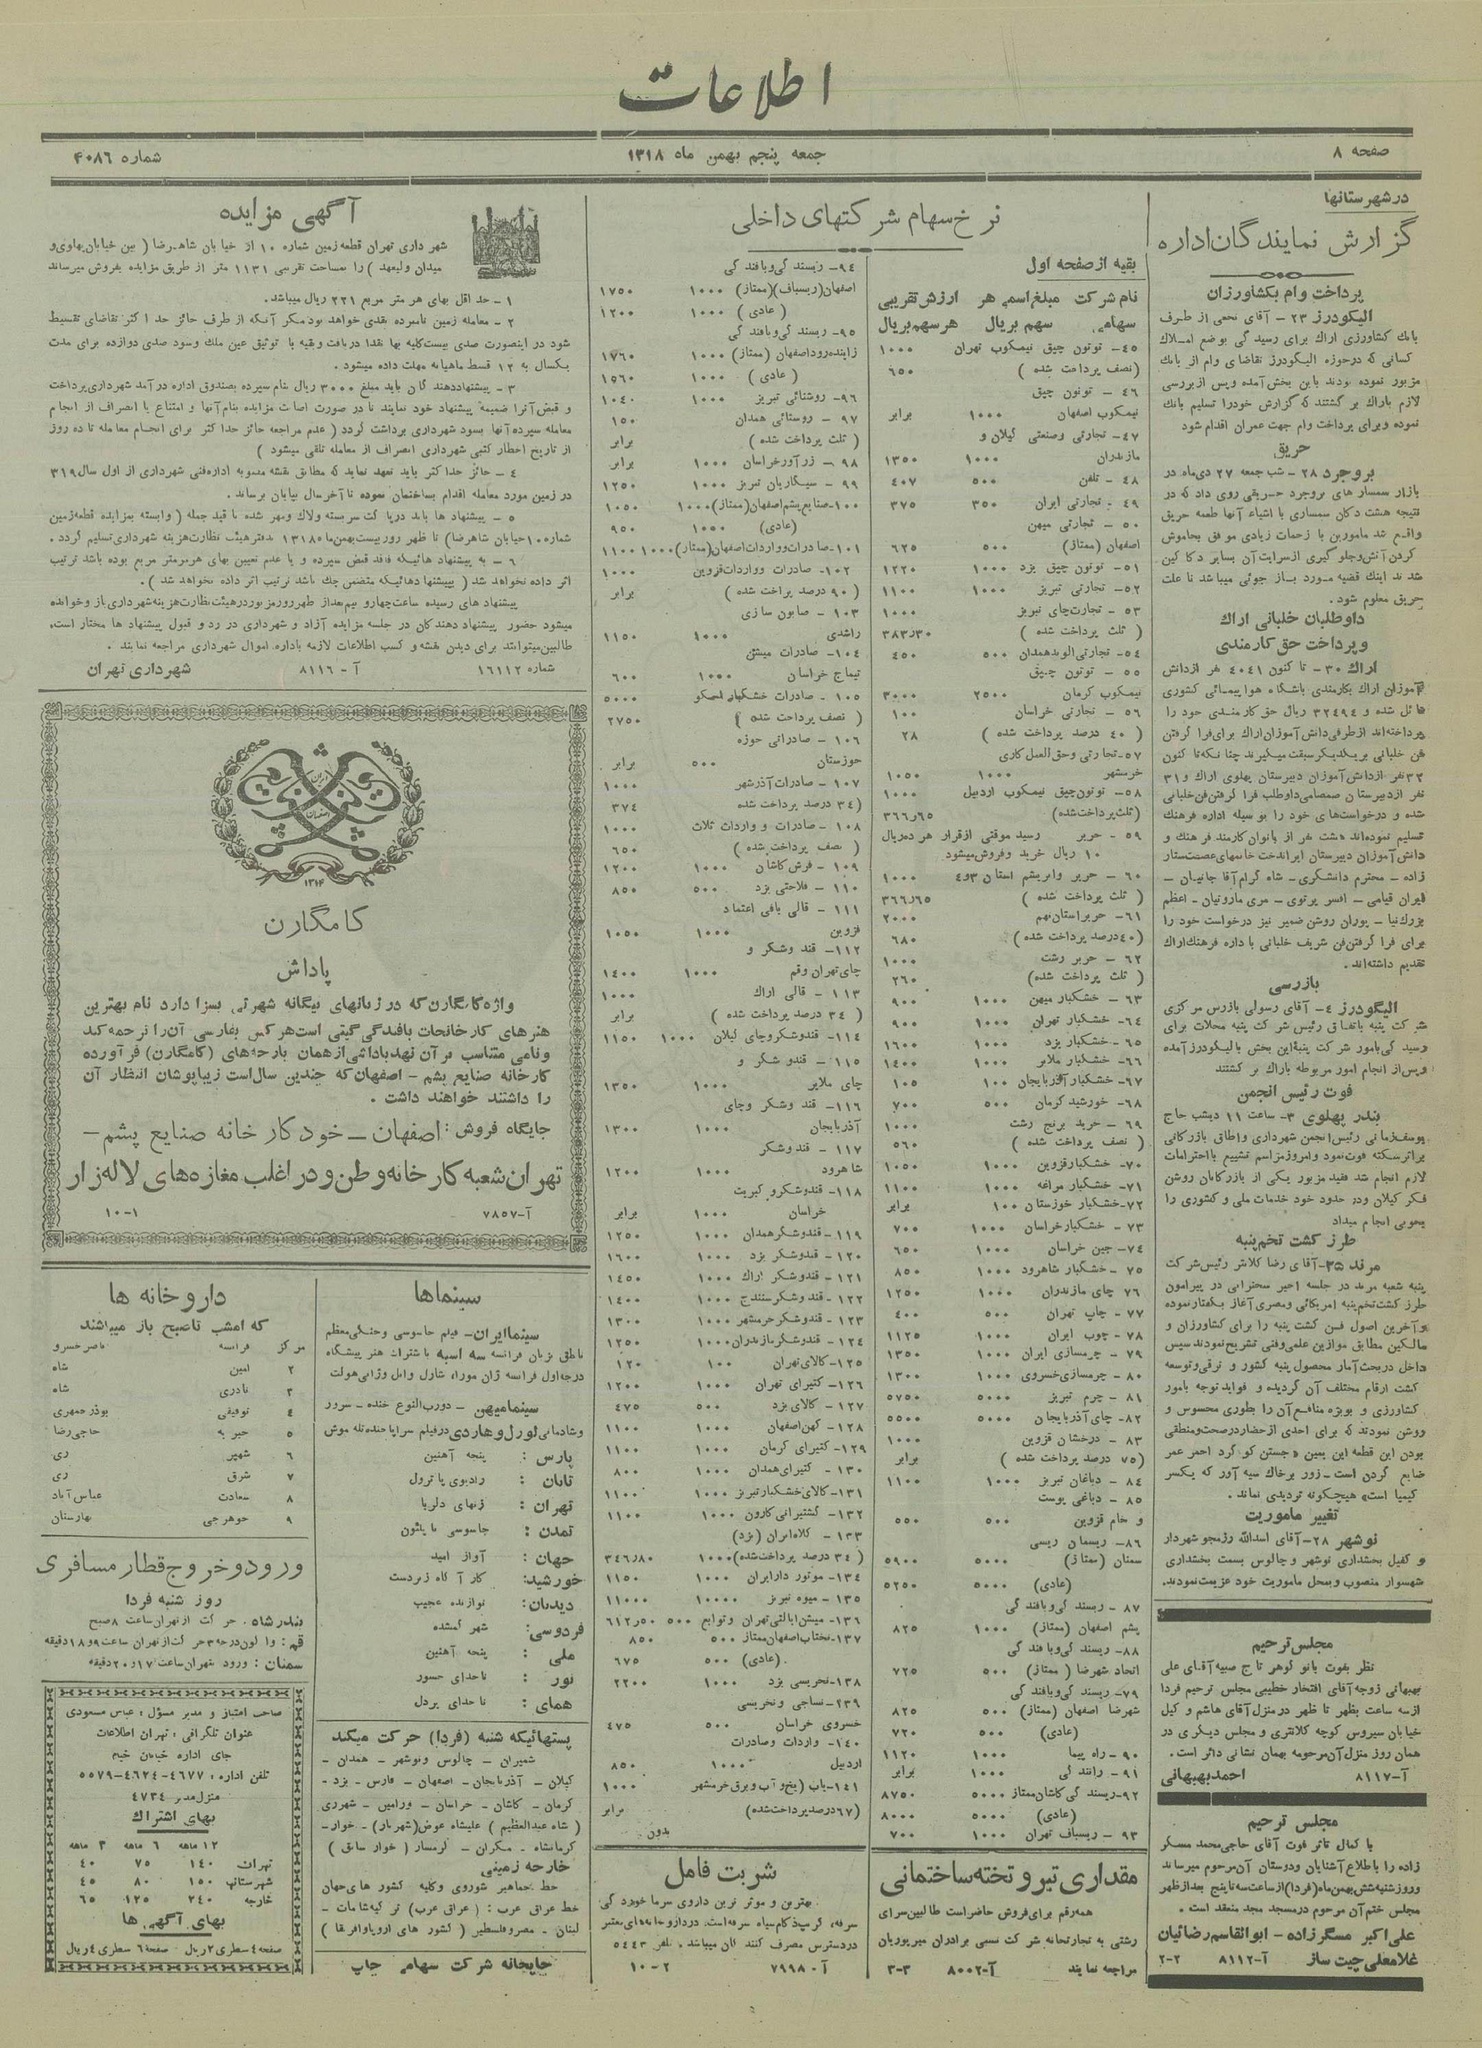 اطلاعات
صفحه ۸
جمعه پنجم بهمن ماه ۱۳۱۸
شماره ۴۰۸۶
در شهرستانها
گزارش نمایندگان اداره
پرداخت وام بکشاورزان
الیگودرز ۲۳ - آقای نجمی از طرف
بانك کشاورزی اراك برای رسیدگی بوضع املاك
کسانی که در حوزه الیگودرز تقاضای وام از بانك
مزبور نموده بودند باین بخش آمده و پس از بررسی
لازم باراك برگشتند که گزارش خود را تسلیم بانك
نموده و برای پرداخت وام جهت عمران اقدام شود
حریق
بروجرد ۲۸ - شب جمعه ۲۷ دی‌ماه در
بازار سمسارهای بروجرد حریقی روی داد که در
نتیجه هشت دکان سمساری با اشیاء آنها طعمه حریق
واقع شد مامورین با زحمات زیادی موفق بخاموش
کردن آتش و جلوگیری از سرایت آن بسایر دکاکین
شدند اینك قضیه مورد بازجوئی میباشد تا علت
حریق معلوم شود.
داوطلبان خلبانی اراك
و پرداخت حق کارمندی
اراك ۳۰ - تا کنون ۴۰۴۱ نفر از دانش
آموزان اراك بکارمندی باشگاه هواپیمائی کشوری
نائل شده و ۳۲۴۹۴ ریال حق کارمندی خود را
پرداخته‌اند از طرفی دانش‌آموزان اراك برای فرا گرفتن
فن خلبانی بریکدیگر سبقت میگیرند چنانکه تا کنون
۳۲ نفر از دانش آموزان دبیرستان پهلوی اراك و ۳۱
نفر از دبیرستان صمصامی داوطلب فرا گرفتن فن خلبانی
شده و درخواست‌های خود را بوسیله اداره فرهنك
تسلیم نموده‌اند هشت نفر از بانوان کارمند فرهنك و
دانش آموزان دبیرستان ایراندخت خانمهای عصمت ستار
زاده - محترم دانشگری - شاه گرام آقا جانیان -
ایران قیامی - افسر پرتوی - مری ماروتیان - اعظم
بزرك نیا - پوران روشن ضمیر نیز درخواست خود را
برای فرا گرفتن فن شریف خلبانی باداره فرهنك اراك
تقدیم داشته‌اند.
بازرسی
الیگودرز ۴- آقای رسولی بازرس مرکزی
شرکت پنبه باتفاق رئیس شرکت پنبه محلات برای
رسیدگی بامور شرکت پنبه این بخش بالیگودرز آمده
و پس از انجام امور مربوطه باراك برگشتند
فوت رئیس انجمن
بندر پهلوی ۳- ساعت ۱۱ دیشب حاج
یوسف زمانی رئیس انجمن شهرداری و اطاق بازرگانی
براثر سکته فوت نمود و امروز مراسم تشییع با احترامات
لازم انجام شد فقید مزبور یکی از بازرگانان روشن
فکر گیلان و در حدود خود خدمات ملی و کشوری را
بخوبی انجام میداد
طرز کشت تخم پنبه
مرند ۲۵- آقای رضا کلاش رئیس شرکت
پنبه شعبه مرند در جلسه اخیر سخنرانی در پیرامون
طرز کشت تخم پنبه امریکائی و مصری آغاز بگفتار نموده
و آخرین اصول فن کشت پنبه را برای کشاورزان و
مالکین مطابق موازین علمی و فنی تشریح نمودند سپس
داخل در بحث آمار محصول پنبه کشور و ترقی و توسعه
کشت ارقام مختلف آن گردیده و فواید توجه بامور
کشاورزی و بویژه منافع آن را بطوری محسوس و
روشن نمودند که برای احدی از حضار در صحت و منطقی
بودن این قطعه ابن یمین « جستن گوگرد احمر عمر
ضایع کردن است - زور بر خاك سیه آور که یکسر
کیمیا است» هیچگونه تردیدی نماند.
تغییر ماموریت
نوشهر ۲۸- آقای اسدالله رزمجو شهردار
و کفیل بخشداری نوشهر و چالوس بسمت بخشداری
شهسوار منصوب و بمحل ماموریت خود عزیمت نمودند.
مجلس ترحیم
نظر بفوت بانو گوهر تاج صبیه آقای علی
بهبهانی زوجه آقای افتخار خطیبی مجلس ترحیم فردا
از سه ساعت بظهر تا ظهر در منزل آقای هاشم وکیل
خیابان سیروس کوچه کلانتری و مجلس دیگری در
همان روز منزل آن مرحومه بهمان نشانی دائر است.
آ-۸۱۱۷ احمد بهبهانی
مجلس ترحیم
با کمال تاثر فوت آقای حاجی محمد مسگر
زاده را باطلاع آشنایان و دوستان آن مرحوم میرساند
و روز شنبه شش بهمن ماه (فردا) از ساعت سه تا پنج بعد از ظهر
مجلس ختم آن مرحوم در مسجد مجد منعقد است.
علی اکبر مسگرزاده - ابوالقاسم رضائیان
غلامعلی چیت ساز آ-۸۱۱۲ ۲-۲
نرخ سهام شرکتهای داخلی
بقیه از صفحه اول
نام شرکت مبلغ اسمی هر ارزش تقریبی
سهامی سهم بریال هر سهم بریال
۴۵- توتون چپق نیمکوب تهران ۱۰۰۰
(نصف پرداخت شده ) ۶۵۰
۴۶ - توتون چپق
نیمکوب اصفهان ۱۰۰۰ برابر
۴۷- تجارتی و صنعتی گیلان و
مازندران ۱۰۰۰ ۱۳۵۰
۴۸ - تلفن ۵۰۰ ۴۰۷
۴۹ - تجارتی ایران ۳۵۰ ۳۷۵
۵۰ - تجارتی میهن
اصفهان (ممتاز) ۵۰۰ ۶۲۵
۵۱- توتون چپق یزد ۱۰۰۰ ۱۲۲۰
۵۲- تجارتی تبریز ۱۰۰۰ ۱۱۰۰
۵۳ - تجارت چای تبریز ۱۰۰۰
( ثلث پرداخت شده ) ۳۸۳٫۳۰
۵۴- تجارتی الوند همدان ۵۰۰ ۴۵۰
۵۵ - توتون چپق
نیمکوب کرمان ۲۵۰۰ ۳۰۰۰
۵۶ - تجارتی خراسان ۱۰۰
( ۴۰ درصد پرداخت شده ) ۲۸
۵۷- تجارتی و حق العمل کاری
خرمشهر ۱۰۰۰ ۱۰۵۰
۵۸- توتون چپق نیمکوب اردبیل ۱۰۰۰
(ثلث پرداخت شده) ۳۶۶٫۶۵
۵۹ - حریر رسید موقتی از قرار هر ده ریال
۱۰ ریال خرید و فروش میشود
۶۰ - حریر و ابریشم استان ۳و۴ ۱۰۰۰
( ثلث پرداخت شده ) ۳۶۶٫۶۵
۶۱- حریر استان نهم ۲۰۰۰
(۴۰درصد پرداخت شده) ۶۸۰
۶۲ - حریر رشت ۱۰۰۰
( ثلث پرداخت شده) ۲۶۰
۶۳ - خشکبار میهن ۱۰۰۰ ۹۰۰
۶۴- خشکبار تهران ۱۰۰۰ ۹۰۰
۶۵ - خشکبار یزد ۱۰۰۰ ۱۶۰۰
۶۶- خشکبار ملایر ۱۰۰۰ ۱۴۰۰
۶۷- خشکبار آذربایجان ۱۰۰ ۱۰۵
۶۸- خورشید کرمان ۵۰۰ ۷۰۰
۶۹ - خرید برنج رشت ۱۰۰۰
( نصف پرداخت شده ) ۵۶۰
۷۰- خشکبار قزوین ۱۰۰۰ ۱۰۵۰
۷۱- خشکبار مراغه ۱۰۰۰ ۱۱۰۰
۷۲- خشکبار خوزستان ۱۰۰ برابر
۷۳ - خشکبار خراسان ۱۰۰۰ ۷۰۰
۷۴ - جین خراسان ۱۰۰۰ ۶۵۰
۷۵ - خشکبار شاهرود ۱۰۰۰ ۸۵۰
۷۶ چای مازندران ۱۰۰۰ ۱۲۵۰
۷۷ - چاپ تهران ۵۰۰ ۴۰۰
۷۸ - چوب ایران ۱۰۰۰ ۱۱۲۵
۷۹ - چرمسازی ایران ۱۰۰۰ ۱۳۵۰
۸۰ - چرمسازی خسروی ۱۰۰۰ ۱۳۰۰
۸۱ - چرم تبریز ۵۰۰۰ ۵۷۵۰
۸۲- چای آذربایجان ۵۰۰۰ ۵۵۰۰
۸۳ - درخشان قزوین ۱۰۰۰
(۷۵ درصد پرداخت شده ) برابر
۸۴ - دباغان تبریز ۱۰۰۰ ۱۱۰۰
۸۵ - دباغی پوست
و خام قزوین ۵۰۰ ۵۵۰
۸۶- ریسمان ریسی
سمنان (ممتاز) ۵۰۰۰ ۵۹۰۰
(عادی) ۵۰۰۰ ۵۲۵۰
۸۷ - ریسندگی و بافندگی
پشم اصفهان (ممتاز) ۱۰۰۰ ۸۲۵
۸۸- ریسندگی و بافندگی
اتحاد شهرضا ( ممتاز) ۵۰۰ ۷۲۵
۷۹- ریسندگی و بافندگی
شهرضا اصفهان (ممتاز) ۵۰۰ ۸۲۵
(عادی) ۵۰۰ ۷۲۰
۹۰ - راه پیما ۱۰۰۰ ۱۱۲۰
۹۱ - رانندگی ۱۰۰۰ برابر
۹۲-ریسندگی کاشان ممتاز ۵۰۰۰ ۸۷۵۰
(عادی) ۵۰۰۰ ۸۰۰۰
۹۳ - ریسباف تهران ۱۰۰۰ ۷۰۰
مقداری تیر و تخته ساختمانی
همه رقم برای فروش حاضر است طالبین سرای
رشتی به تجارتخانه شرکت نسبی برادران میرپوریان
مراجعه نمایند آ-۸۰۰۲ ۳-۳
۹۴- ریسندگی و بافندگی
اصفهان (ریسباف)(ممتاز) ۱۰۰۰ ۱۷۵۰
( عادی ) ۱۰۰۰ ۱۲۰۰
۹۵- ریسندگی و بافندگی
زاینده رود اصفهان (ممتاز) ۱۰۰۰ ۱۷۶۰
( عادی ) ۱۰۰۰ ۱۵۶۰
۹۶- روشنائی تبریز ۱۰۰۰ ۱۰۴۰
۹۷ - روستائی همدان ۱۵۰
( ثلث پرداخت شده ) برابر
۹۸ - زرآور خراسان ۱۰۰۰ برابر
۹۹ - سیگاریان تبریز ۱۰۰۰ ۱۲۵۰
۱۰۰-صنایع پشم اصفهان (ممتاز)۱۰۰۰ ۱۰۵۰
(عادی) ۱۰۵۰ ۹۵۰
۱۰۱-صادرات و واردات اصفهان (ممتاز)۱۰۰۰ ۱۱۰۰
۱۰۲- صادرات و واردات قزوین ۱۰۰۰
( ۹۰ درصد پرداخت شده ) برابر
۱۰۳ - صابون سازی
راشدی ۱۰۰۰ ۱۱۵۰
۱۰۴- صادرات میشن
تیماج خراسان ۱۰۰۰ ۶۰۰
۱۰۵ - صادرات خشکبار اسکو ۵۰۰۰
( نصف پرداخت شده ) ۲۷۵۰
۱۰۶ - صادراتی حوزه
خوزستان ۵۰۰ برابر
۱۰۷ - صادرات آذرشهر ۱۰۰۰
(۳۴ درصد پرداخت شده ۳۷۴
۱۰۸ - صادرات و واردات ثلاث ۱۰۰۰
( نصف پرداخت شده ) ۶۵۰
۱۰۹ - فرش کاشان ۱۰۰۰ ۱۲۰۰
۱۱۰ - فلاحتی یزد ۵۰۰ ۸۵۰
۱۱۱ - قالی بافی اعتماد
قزوین ۱۰۰۰ ۱۰۵۰
۱۱۲- قند و شکر و
چای تهران و قم ۱۰۰۰ ۱۴۰۰
۱۱۳ - قالی اراك ۱۰۰۰
( ۳۴ درصد پرداخت شده ) برابر
۱۱۴- قند و شکر و چای گیلان ۱۰۰۰ ۱۱۵۰
۱۱۵ - قند و شکر و
چای ملایر ۱۰۰۰ ۱۳۵۰
۱۱۶- قند و شکر و چای
آذربایجان ۱۰۰۰ ۱۳۰۰
۱۱۷ - قند و شکر
شاهرود ۱۰۰۰ ۱۲۰۰
۱۱۸- قند و شکر و کبریت
خراسان ۱۰۰۰ برابر
۱۱۹ - قند و شکر همدان ۱۰۰۰ ۱۲۵۰
۱۲۰ - قند و شکر یزد ۱۰۰۰ ۱۶۰۰
۱۲۱ - قند و شکر اراك ۱۰۰۰ ۱۴۵۰
۱۲۲ - قند و شکر سنندج ۱۰۰۰ ۱۴۰۰
۱۲۳- قند و شکر خرمشهر ۱۰۰۰ ۱۳۰۰
۱۲۴ - قند و شکر مازندران ۱۰۰۰ ۱۲۵۰
۱۲۵- کالای تهران ۱۰۰ ۱۲۰
۱۲۶- کتیرای تهران ۱۰۰۰ ۱۲۰۰
۱۲۷ - کالای یزد ۵۰۰ ۴۷۵
۱۲۸ - کهن اصفهان ۱۰۰۰ ۱۱۰۰
۱۲۹- کتیرای کرمان ۱۰۰۰ ۱۱۰۰
۱۳۰ - کتیرای همدان ۱۰۰۰ ۸۰۰
۱۳۱- کالای خشکبار تبریز ۱۰۰۰ ۱۱۰۰
۱۳۲- کشتیرانی کارون ۱۰۰۰ ۱۱۰۰
۱۳۳ - کلاه ایران (یزد)
( ۳۴ درصد پرداخت شده) ۱۰۰۰ ۳۴۶٫۸۰
۱۳۴ - موتور داران ایران ۱۰۰۰ ۱۱۵۰
۱۳۵ - میوه تبریز ۱۰۰۰۰ ۱۱۰۰۰
۱۳۶- میشن ایالتی تهران و توابع ۵۰۰ ۶۱۲٫۵۰
۱۳۷- نختاب اصفهان ممتاز ۵۰۰ ۸۵۰
(عادی) ۵۰۰ ۶۷۵
۱۳۸- نخریسی یزد ۱۰۰۰ ۲۲۰۰
۱۳۹- نساجی و نخریسی
خسروی خراسان ۵۰۰ ۴۷۵
۱۴۰- واردات و صادرات
اردبیل ۱۰۰۰ ۸۵۰
۱۴۱- یاب (یخ و آب و برق خرمشهر ۱۰۰۰
(۶۷ درصد پرداخت شده) برابر
بدون
شربت فامل
بهترین و موثرترین داروی سرماخوردگی
سرفه، گریپ، زکام، سیاه سرفه است. در داروخانه‌های معتبر
در دسترس مصرف کنندگان میباشد. تلفن ۵۴۴۳
آ - ۷۹۹۸ ۲ - ۱۰
آگهی مزایده
شهرداری تهران قطعه زمین شماره ۱۰ از خیابان شاهرضا ( بین خیابان پهلوی و
میدان ولیعهد ) را بمساحت تقریبی ۱۱۳۱ متر از طریق مزایده بفروش میرساند
۱ - حد اقل بهای هر متر مربع ۲۲۱ ریال میباشد.
۲ - معامله زمین نامبرده نقدی خواهد بود مگر آنکه از طرف حائز حد اکثر تقاضای تقسیط
شود در اینصورت صدی بیست کلیه بها نقدا دریافت و بقیه با توثیق عین ملك و سود صدی دوازده برای مدت
یکسال به ۱۲ قسط ماهیانه مهلت داده میشود.
۳ - پیشنهاد دهندگان باید مبلغ ۳۰۰۰ ریال بنام سپرده بصندوق اداره درآمد شهرداری پرداخت
و قبض آنرا ضمیمه پیشنهاد خود نمایند تا در صورت اصابت مزایده بنام آنها و امتناع یا انصراف از انجام
معامله سپرده آنها بسود شهرداری برداشت گردد ( عدم مراجعه حائز حداکثر برای انجام معامله تا ده روز
از تاریخ اخطار کتبی شهرداری انصراف از معامله تلقی میشود )
۴ - حائز حداکثر باید تعهد نماید که مطابق نقشه مصوبه اداره فنی شهرداری از اول سال ۳۱۹
در زمین مورد معامله اقدام بساختمان نموده تا آخر سال بپایان برساند.
۵ - پیشنهاد ها باید در پاکت سربسته و لاك و مهر شده با قید جمله ( وابسته بمزایده قطعه زمین
شماره ۱۰ خیابان شاهرضا) تا ظهر روز بیست بهمن ماه ۱۳۱۸ بدفتر هیئت نظارت هزینه شهرداری تسلیم گردد.
۶ - به پیشنهاد هائیکه فاقد قبض سپرده و یا عدم تعیین بهای هر متر مربع بوده باشد ترتیب
اثر داده نخواهد شد ( پیشنهاد هائیکه متضمن چك باشد ترتیب اثر داده نخواهد شد ).
پیشنهاد های رسیده ساعت چهار و نیم بعد از ظهر روز مزبور در هیئت نظارت هزینه شهرداری باز و خوانده
میشود حضور پیشنهاد دهندگان در جلسه مزایده آزاد و شهرداری در رد و قبول پیشنهاد ها مختار است.
طالبین میتوانند برای دیدن نقشه و کسب اطلاعات لازمه باداره اموال شهرداری مراجعه نمایند.
شماره ۱۶۱۱۲ آ- ۸۱۱۶ شهرداری تهران
اصفهان
۱۳۱۴
کامگارن
پاداش
واژه کامگارن که در زبانهای بیگانه شهرتی بسزا دارد نام بهترین
هنرهای کارخانجات بافندگی گیتی است هر کس بفارسی آن را ترجمه کند
و نامی متناسب بر آن نهد پاداشی از همان پارچه‌های (کامگارن) فرآورده
کارخانه صنایع پشم - اصفهان که چندین سال است زیباپوشان انتظار آن
را داشتند خواهند داشت.
جایگاه فروش: اصفهان - خود کارخانه صنایع پشم -
تهران شعبه کارخانه وطن و در اغلب مغازه‌های لاله‌زار
آ-۷۸۵۷ ۱-۱۰
سینماها
سینما ایران- فیلم جاسوسی و جنگی معظم
ناطق بزبان فرانسه سه اسبه با شرکت هنرپیشگاه
درجه اول فرانسه ژان مورا، شارل وانل وژانی هولت
سینما میهن - دورب النوع خنده - سرور
و شادمانی لورل و هاردی در فیلم سراپا خنده تله موش
پارس: پنجه آهنین
تابان: رادیوی پاترول
تهران: زنهای دلربا
تمدن: جاسوسی ناپلئون
جهان: آواز امید
خورشید: کارآگاه زبردست
دیدبان: نوازنده عجیب
فردوسی: شهر گمشده
ملی: پنجه آهنین
نور: ناخدای جسور
همای: ناخدای پردل
پستهائیکه شنبه (فردا) حرکت میکند
شمیران - چالوس و نوشهر - همدان -
گیلان - آذربایجان - اصفهان - فارس - یزد -
کرمان - کاشان - خراسان - ورامین - شهرری
( شاه عبدالعظیم ) علیشاه عوض (شهریار) - خوار-
کرمانشاه - مکران - گرمسار ( خوار سابق )
خارجه زمینی
خط جماهیر شوروی و کلیه کشورهای جهان
خط عراق عرب: ( عراق عرب) ترکیه شامات -
لبنان - مصر و فلسطین ( کشور های اروپا و افریقا )
چاپخانه شرکت سهامی چاپ
داروخانه ها
که امشب تا صبح باز میباشند
مرکز فرانسه ناصر خسرو
۲ امین شاه
۳ نادری شاه
۴ توفیقی بوذرجمهری
۵ خیریه حاجی رضا
۶ شهپر ری
۷ شرق ری
۸ سعادت عباس آباد
۹ جوهرچی بهارستان
ورود و خروج قطار مسافری
روز شنبه فردا
بندرشاه. حرکت از تهران ساعت ۸ صبح
قم: واگون درجه ۳ حرکت از تهران ساعت ۹ و ۱۸ دقیقه
سمنان: ورود تهران ساعت ۱۷ و ۲۰ دقیقه
صاحب امتیاز و مدیر مسؤل: عباس مسعودی
عنوان تلگرافی: تهران اطلاعات
جای اداره خیابان خیام
تلفن اداره: ۴۶۷۷-۴۶۲۴-۵۵۷۹
منزل مدیر ۴۷۳۴
بهای اشتراك
۱۲ ماهه ۶ ماهه ۳ ماهه
تهران ۱۴۰ ۷۵ ۴۰
شهرستان ۱۵۰ ۸۰ ۴۵
خارجه ۲۴۰ ۱۲۵ ۶۵
بهای آگهی ها
صفحه ۴ سطری ۲ ریال صفحه ۶ سطری ۴ ریال